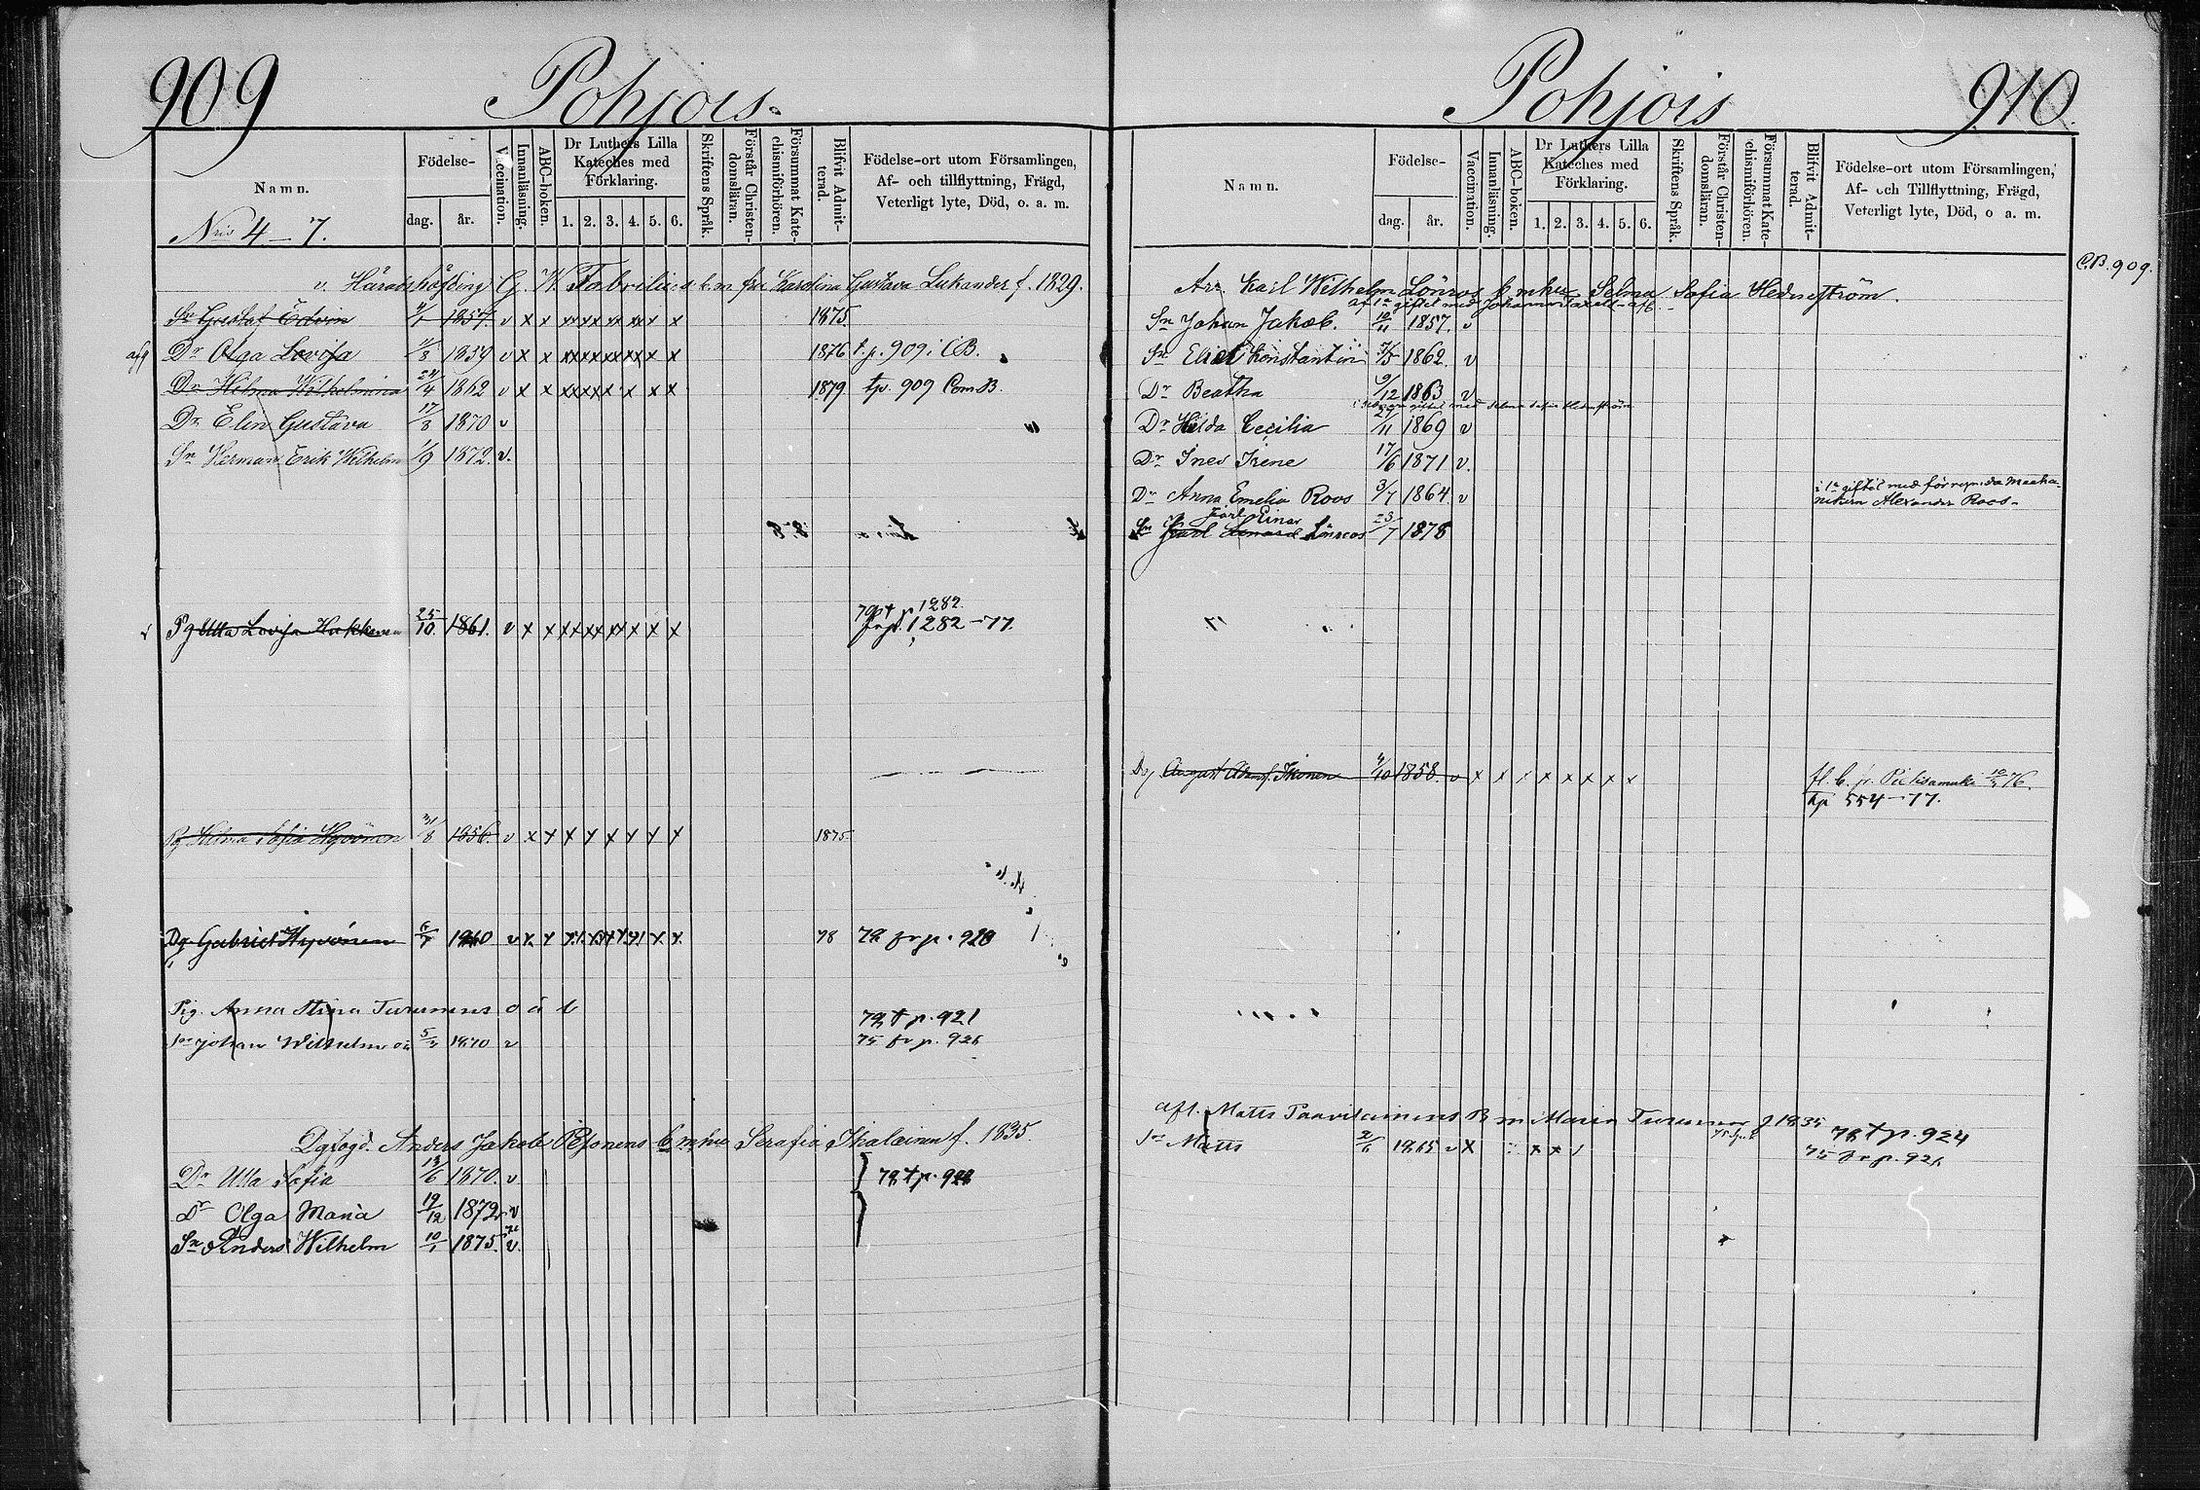 909
Pohjois-
Namn.
Födelse-
dag.
år.
Vaccination.
Innanläsning.
ABC-boken.
Dr Luthers Lilla Kateches med Förklaring.
1. 2. 3. 4. 5. 6.
Skriftens Språk.
Förstår Christendomsläran.
Försummat Katechismiförhören.
Blifvit Admitterad.
Födelse-ort utom Församlingen,
Af- och tillflyttning, Frägd,
Veterligt lyte, Död, o. a. m.
Nris 4-7.
v. Häradshöfding G. W. Fabritius b. m fru Karolina Gustava Lukander f. 1829.
Sn Gustaf Edvin 1857. v x x xx xx xx xx x x 1875
Dr Olga Lovisa 11/3 1859 v x x xx xx xx xx x x 1876 t. p. 909 i CB.
Dr Hilma Wilhelmina 24/4 1862 v x x xx xx x x x x 1879 tp. 909 Com.B.
Dr Elin Gustava 17/3 1870 v
Sn Herman Erik Wilhelm 1/9 1872. v.
Pg Ulla Lovisa Hakkinen 25/10. 1861. v x x xx xx xx x x x 79 p 1282.
1282-77.
Pg Hilma Sofia Hyvönen 21/8 1856. v x x x x x x x x 1875
Dg Gabriel Hyvönen 1860 v x x 78 78 fr p. 920
Pig. Anna Stina Turunens o ä b 78 t p. 921
Sn Johan Wilhelm 1870 v 75 fr p. 921
Dgfogd. Anders Jakob Pesonens b m hu Serafia Ikalainen f. 1835.
Dr Ulla Sofia 13/6 1870. v 78 t p.
Dr Olga Maria 19/12 1872 v
Sn Anders Wilhelm 10/1 1875. v.
Pohjois
910
Namn.
Födelse-
dag.
år.
Vaccination.
Innanläsning.
ABC-boken.
Dr Luthers Lilla Kateches med Förklaring.
1. 2. 3. 4. 5. 6.
Skriftens Språk.
Förstår Christendomsläran.
Försummat Katechismiförhören.
Blifvit Admitterad.
Födelse-ort utom Församlingen,
Af- och Tillflyttning, Frägd,
Veterligt lyte, Död, o a. m.
C.B. 909.
Arr. Karl Wilhelm Lönros b m hu Selma Sofia Hednström.
af 1a giftet med Johanna
Sn Johan Jakob. 10/11 1857. v
Sn Elias Konstantin 7/5 1862. v
Dr Beatha 9/12 1863 v
giftet med Selma Sofia Hednström
Dr Hilda Cecilia 24/11 1869 v
Dr Ines Irene 17/6 1871 v.
Dr Anna Emelia Roos 3/7 1864 v i 1a giftet med förre
Alexander Roos.
Karl Einar
Sn Karl Lönroos 23/7 1878
Dg August Adam Ikonen 4/10 1858 v x x x x x x x x fl. b. fr. Pieksamäki 76.
tp 554-77.
afl. Matts Paavilainens B m Maria Turunen f 1835
Sn Matts 1865 v x x x 78 t p. 924
75 fr p. 921